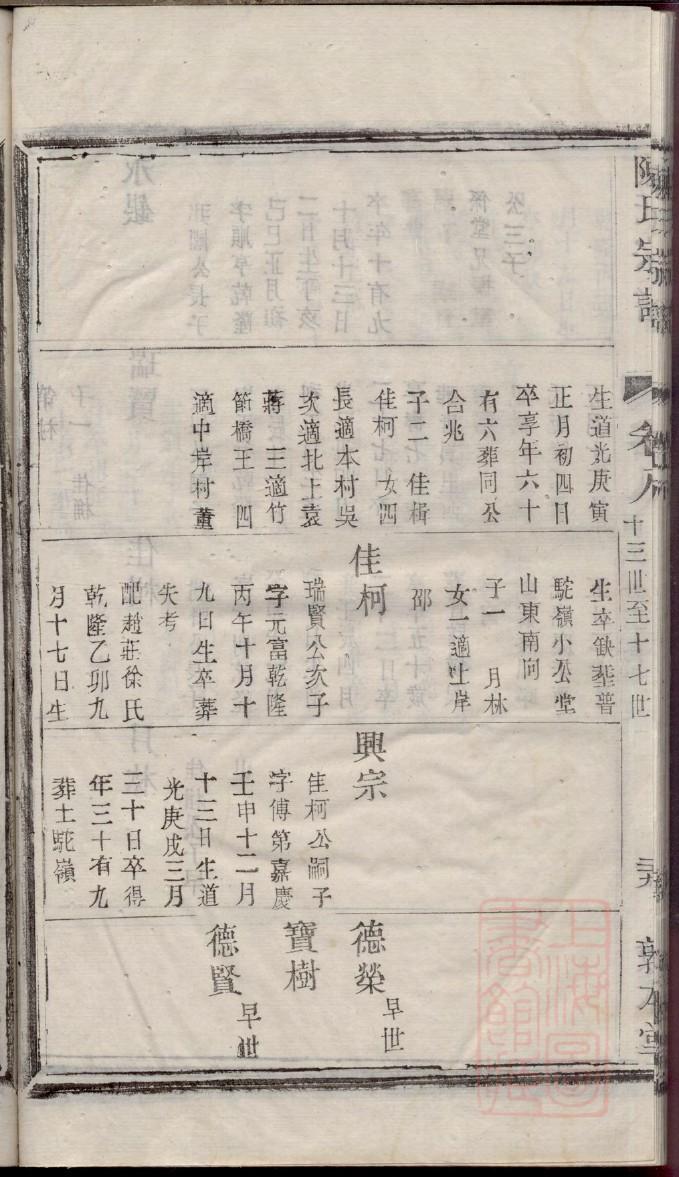 陳氏宗譜
卷八
十三世至十七世
生道光庚寅
正月初四日
卒享年六十
有六葬同公
合兆
子二 佳楫
佳柯 女四
長適本村吳
次適北上袁
蔣 三適竹
節橋王 四
適中岸村董
生卒缺塟普
駝嶺小公堂
山東南向
子一 月林
女一適上岸
邵
佳柯
瑞賢公次子
字元富乾隆
丙午十月十
九日生卒葬
失考
配趙莊徐氏
乾隆乙卯九
月十七日生
興宗
佳柯公嗣子
字傅第嘉慶
壬申十二月
十三日生道
光庚戌三月
三十日卒得
年三十有九
葬土駝嶺
德榮 早世
寶樹
德賢 早世